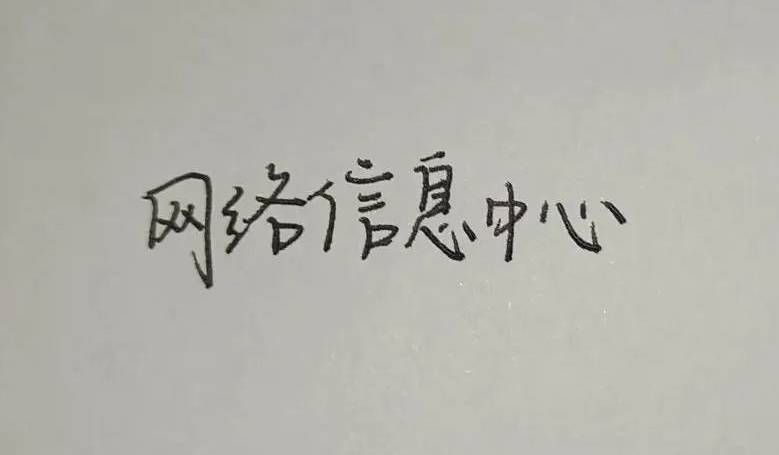 网络信息中心